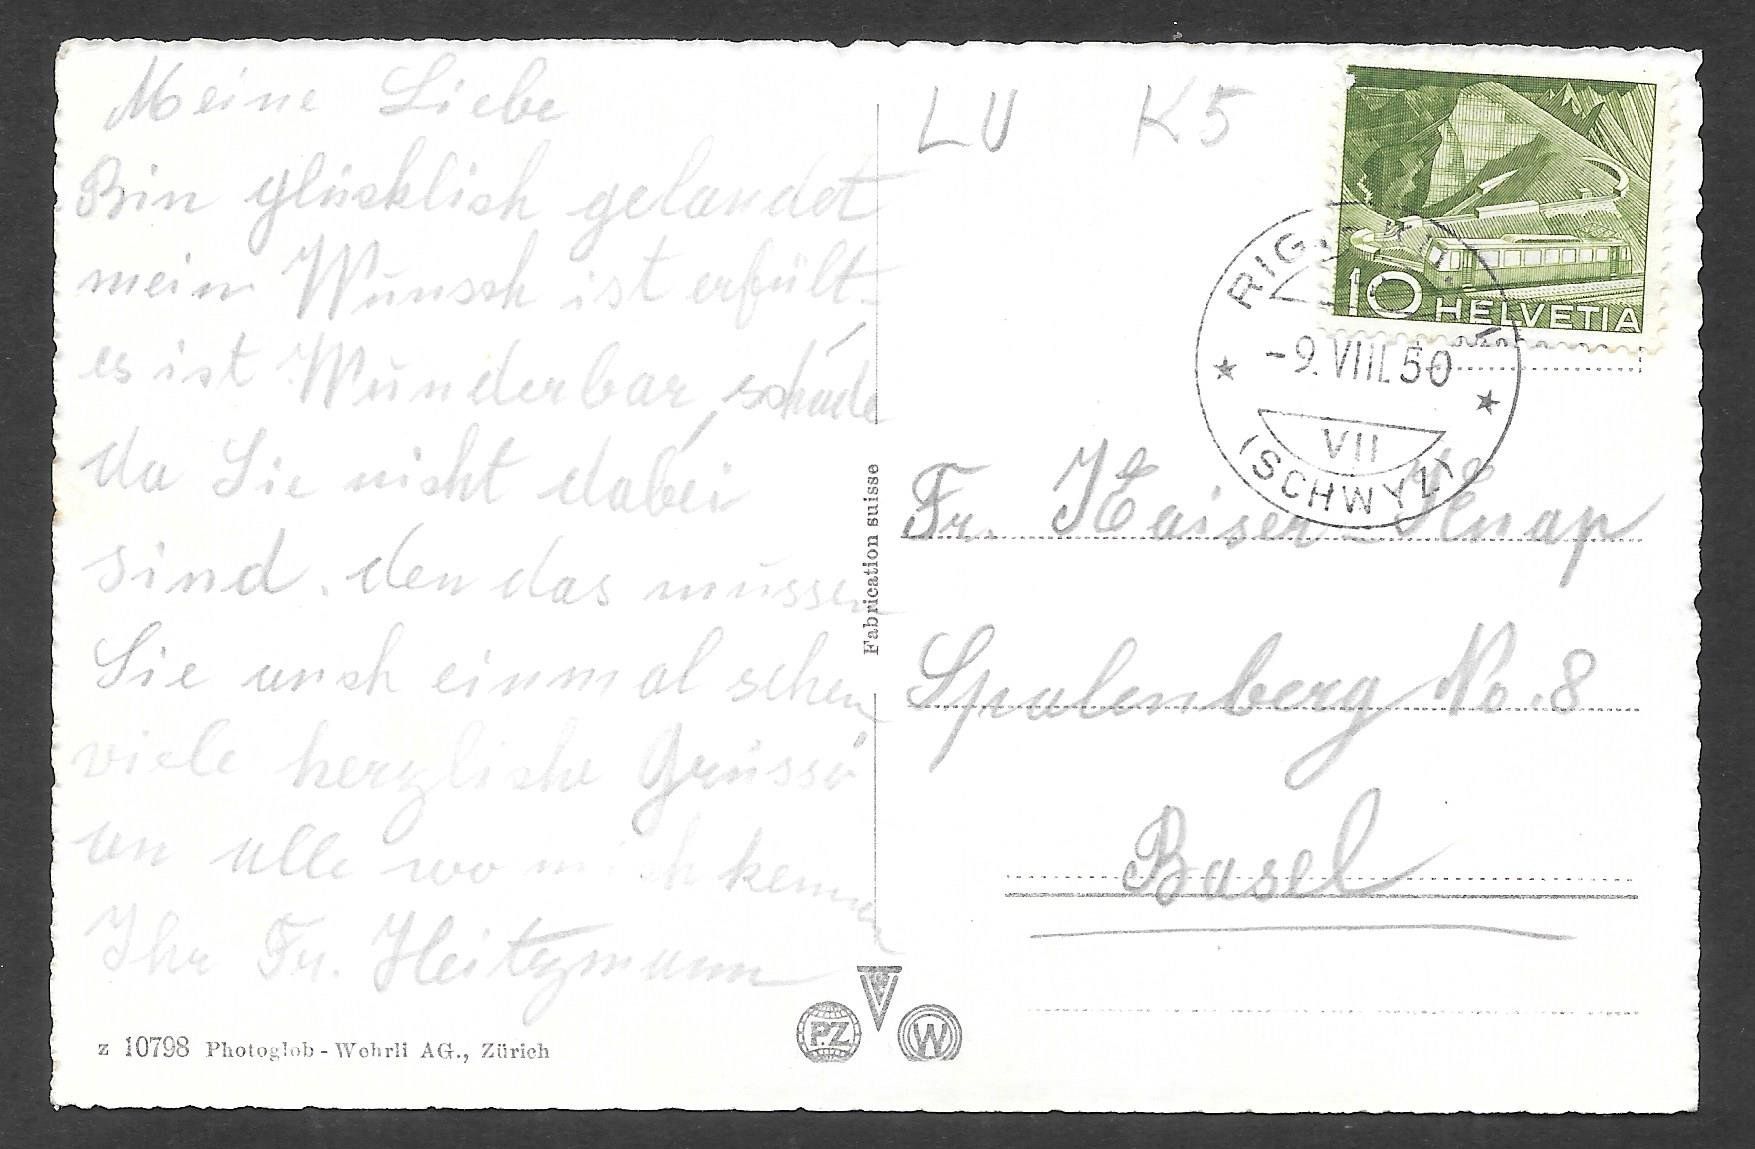 Meine Liebe
Bin glücklich gelandet
mein Wunsch ist erfült
es ist Wunderbar, schade
da Sie nicht dabei
sind. den das müssen
Sie auch einmal sehen
viele herzliche Grüsse
an alle wo mich kennen
Ihr Fr. Heitzmann
z 10798 Photoglob-Wehrli AG., Zürich
Fabrication suisse
P.Z
W
LU K5
10 HELVETIA
-9.VIII.50
VII
(SCHWYZ)
Fr. Kaiser-Knap
Spalenberg No. 8
Basel